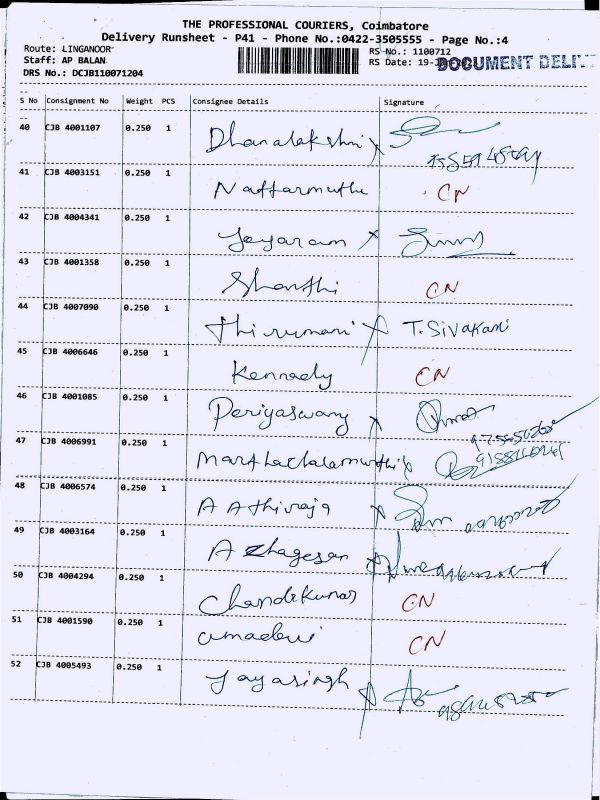 THE PROFESSIONAL COURIERS, Coimbatore
Delivery Runsheet - P41 - Phone No.:0422-3505555 - Page No.:4
Route: LINGANOOR RS No.: 1100712
Staff: AP BALAN RS Date: 19- DOCUMENT DELI
DRS No.: DCJB110071204
S No Consignment No Weight PCS Consignee Details Signature
40 CJB 4001107 0.250 1 Dhanalakshmi
41 CJB 4003151 0.250 1 Nattarmuthu CN
42 CJB 4004341 0.250 1 Jeyaram
43 CJB 4001358 0.250 1 Shanthi CN
44 CJB 4007090 0.250 1 Thirumani T. Sivakani
45 CJB 4006646 0.250 1 Kennady CN
46 CJB 4001085 0.250 1 Periyaswamy
47 CJB 4006991 0.250 1
48 CJB 4006574 0.250 1 A Athiraja
49 CJB 4003164 0.250 1 Azhagesan
50 CJB 4004294 0.250 1 Chandrkumar CN
51 CJB 4001590 0.250 1 Umadevi CN
52 CJB 4005493 0.250 1 Jayasingh